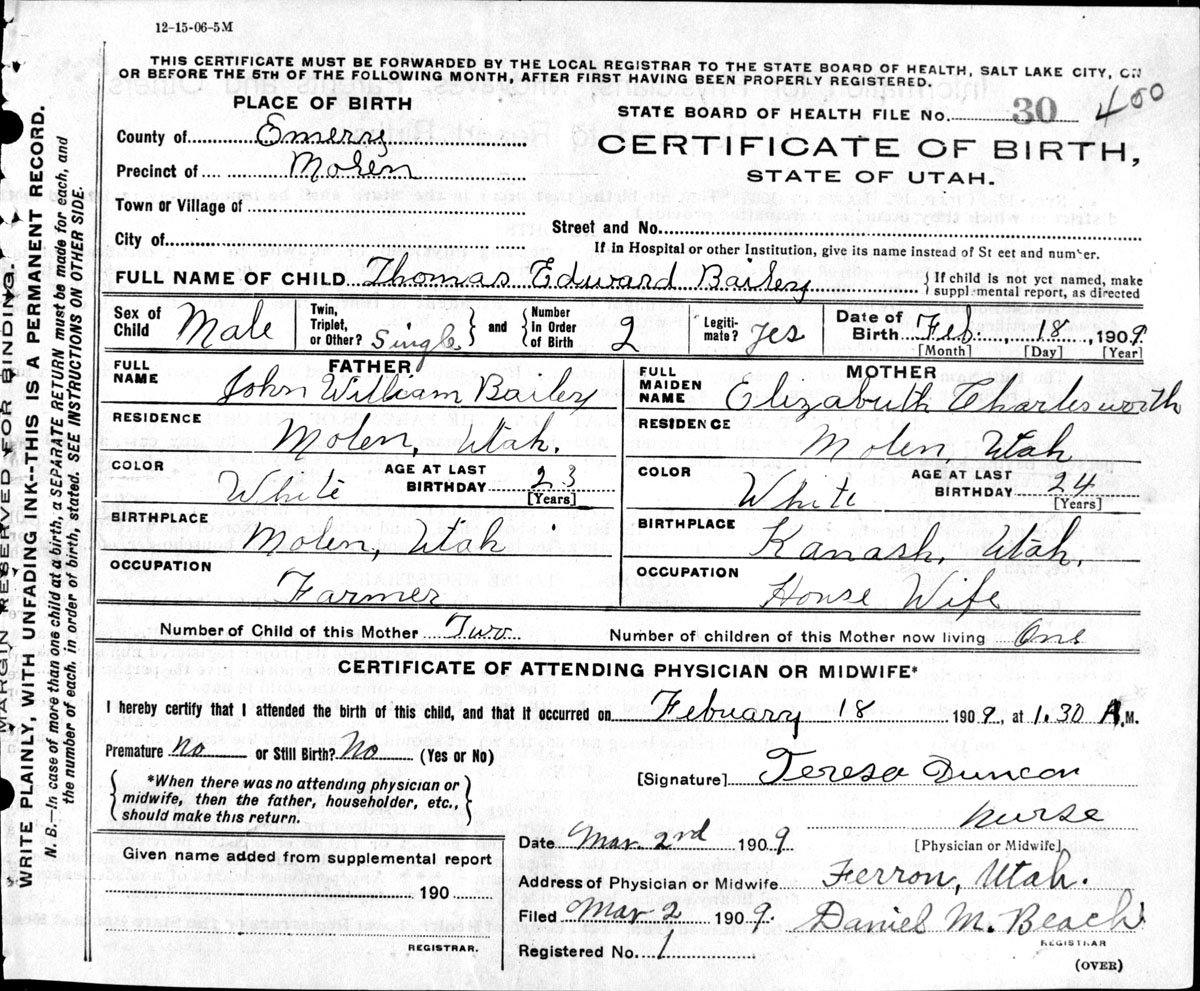 12-15-06-5M
THIS CERTIFICATE MUST BE FORWARDED BY THE LOCAL REGISTRAR TO THE STATE BOARD OF HEALTH, SALT LAKE CITY, ON
OR BEFORE THE 5TH OF THE FOLLOWING MONTH, AFTER FIRST HAVING BEEN PROPERLY REGISTERED.
PLACE OF BIRTH
STATE BOARD OF HEALTH FILE No. 30 400
County of Emery
CERTIFICATE OF BIRTH,
Precinct of Molen
STATE OF UTAH.
Town or Village of
Street and No.
City of
If in Hospital or other Institution, give its name instead of St eet and number.
FULL NAME OF CHILD Thomas Edward Bailey { If child is not yet named, make supplemental report, as directed
Sex of Child Male Twin, Triplet, or Other? Single } and { Number in Order of Birth 2 Legiti-mate? Yes Date of Birth Feb. 18, 1909
[Month] [Day] [Year]
FATHER
FULL NAME John William Bailey
RESIDENCE Molen, Utah.
COLOR White AGE AT LAST BIRTHDAY 23
[Years]
BIRTHPLACE Molen, Utah
OCCUPATION Farmer
MOTHER
FULL MAIDEN NAME Elizabuth Charlesworth
RESIDENCE Molen, Utah
COLOR White AGE AT LAST BIRTHDAY 24
[Years]
BIRTHPLACE Kanash, Utah,
OCCUPATION House Wife
Number of Child of this Mother Two Number of children of this Mother now living One
CERTIFICATE OF ATTENDING PHYSICIAN OR MIDWIFE*
I hereby certify that I attended the birth of this child, and that it occurred on Febuary 18 1909, at 1.30 A.M.
Premature No or Still Birth? No (Yes or No)
{ *When there was no attending physician or midwife, then the father, householder, etc., should make this return. }
[Signature] Teresa Duncan
nurse
[Physician or Midwife]
Date Mar 2nd 1909
Given name added from supplemental report
190
REGISTRAR.
Address of Physician or Midwife Ferron, Utah.
Filed Mar 2 1909. Daniel M. Beach
REGISTRAR
Registered No. 1
(OVER)
MARGIN RESERVED FOR BINDING.
WRITE PLAINLY, WITH UNFADING INK--THIS IS A PERMANENT RECORD.
N. B.—In case of more than one child at a birth, a SEPARATE RETURN must be made for each, and
the number of each, in order of birth, stated. SEE INSTRUCTIONS ON OTHER SIDE.